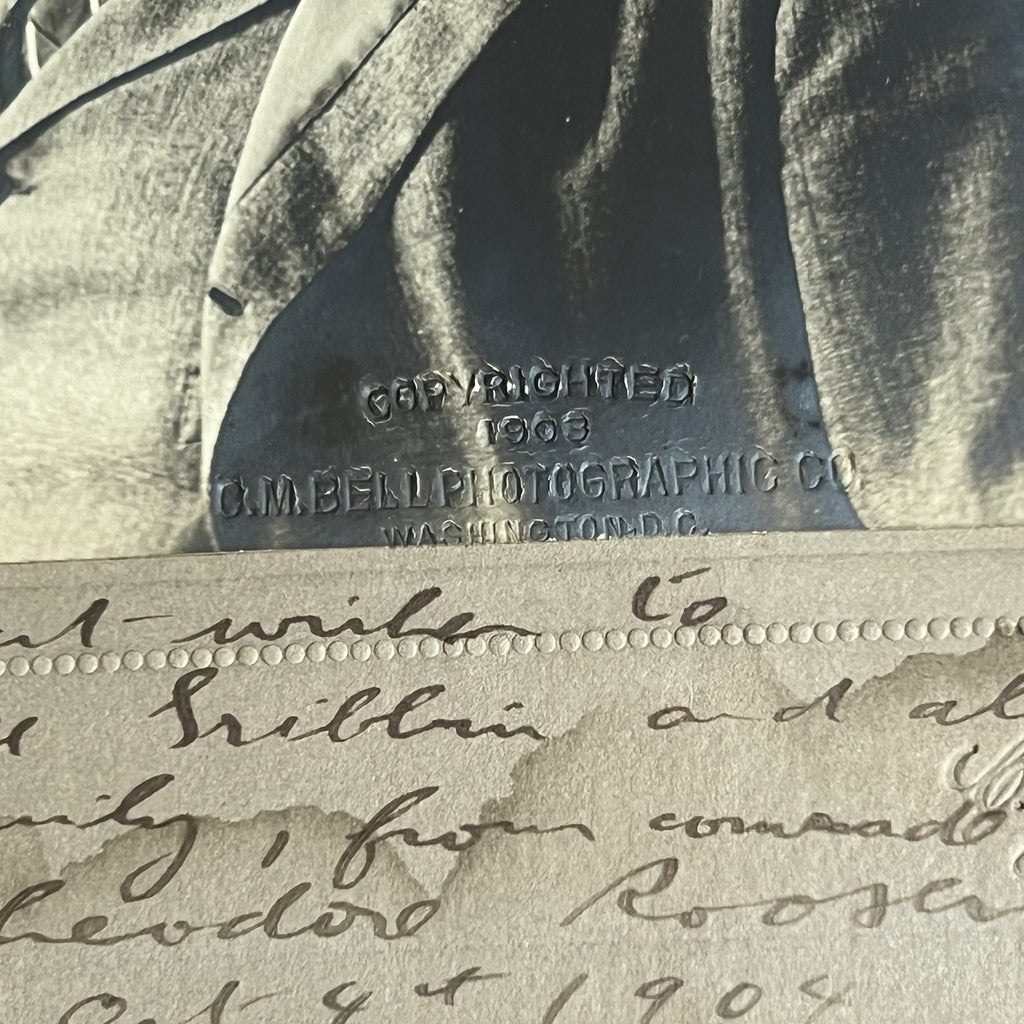 COPYRIGHTED
1903
C.M.BELL PHOTOGRAPHIC CO
WASHINGTON.D.C.
to
Gribbin and al
mily, from comrade
heodore Roosev
Oct 4th 1904